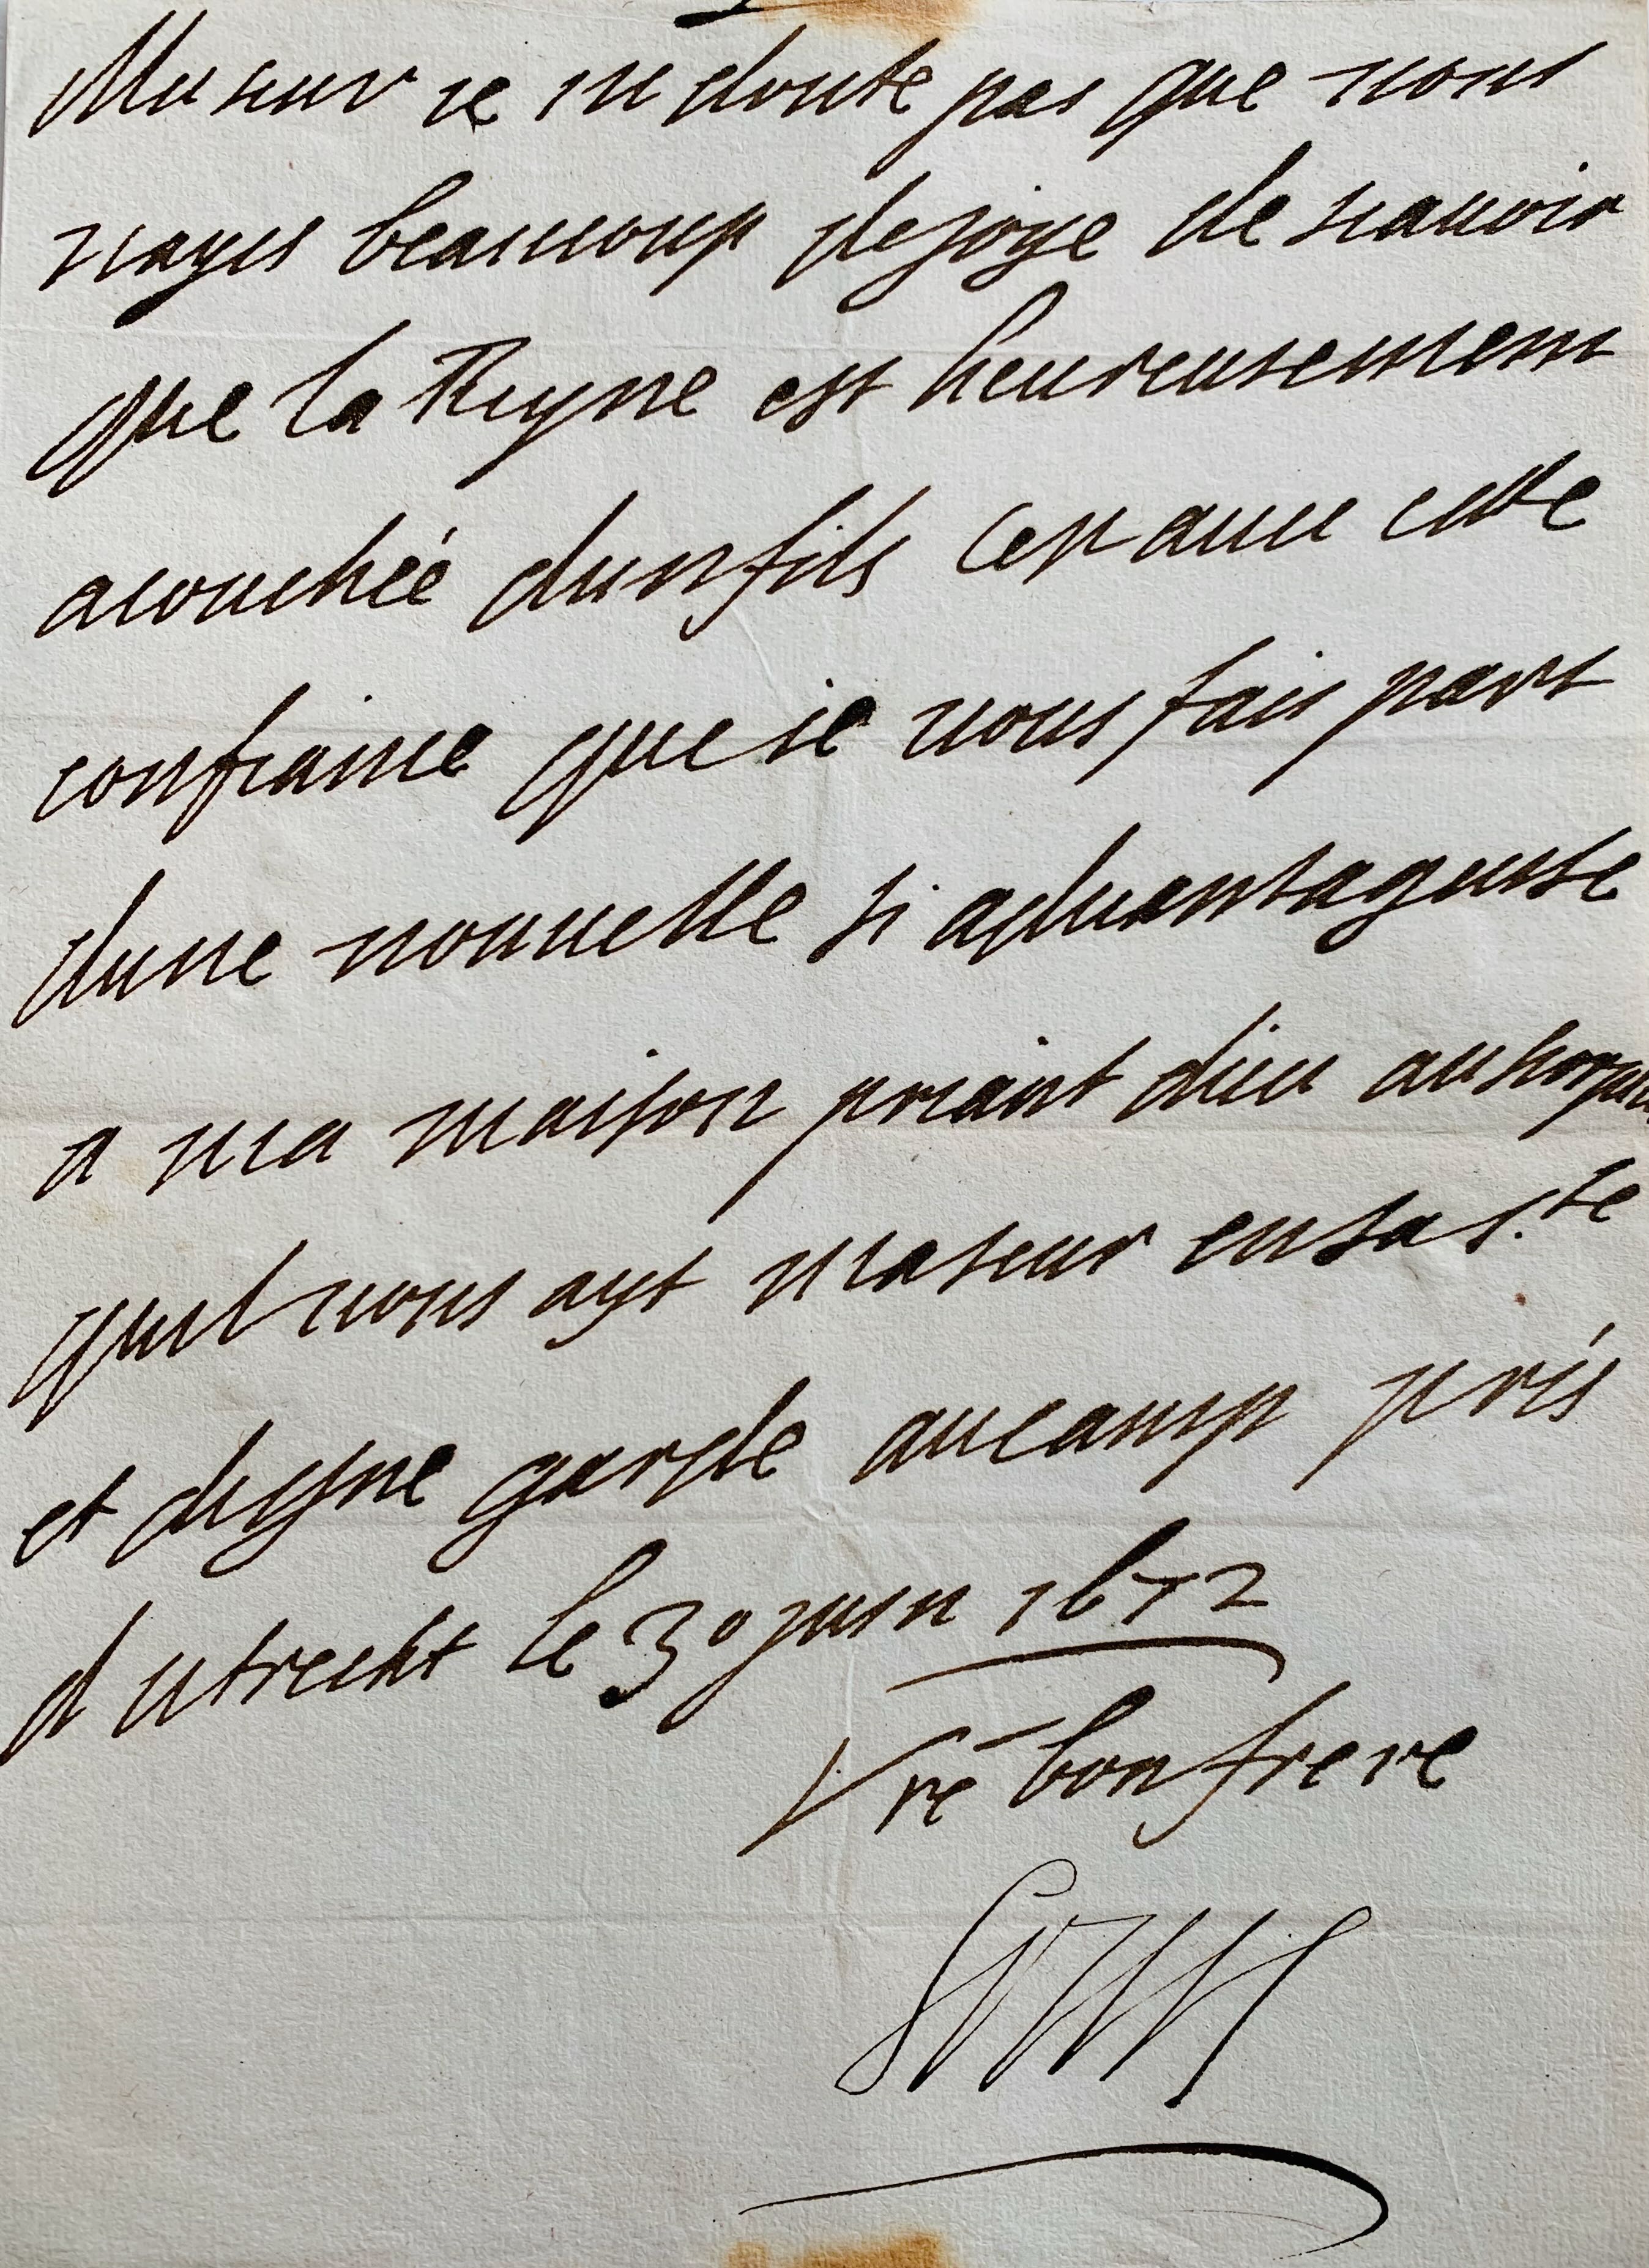 Ma seur ie ne doute pas que vous
nayes beaucoup de joye de scavoir
que la Reyne est heureusement
acouchéé dun fils Cest avec cette
confiance que ie vous fais part
dune nouvelle si advantageuse
a ma maison priant dieu au
quil vous ayt ma seur en sa s.te
et digne garde au camp prés
dutrecht le 30 juin 1672
Vre bon frere
Louis